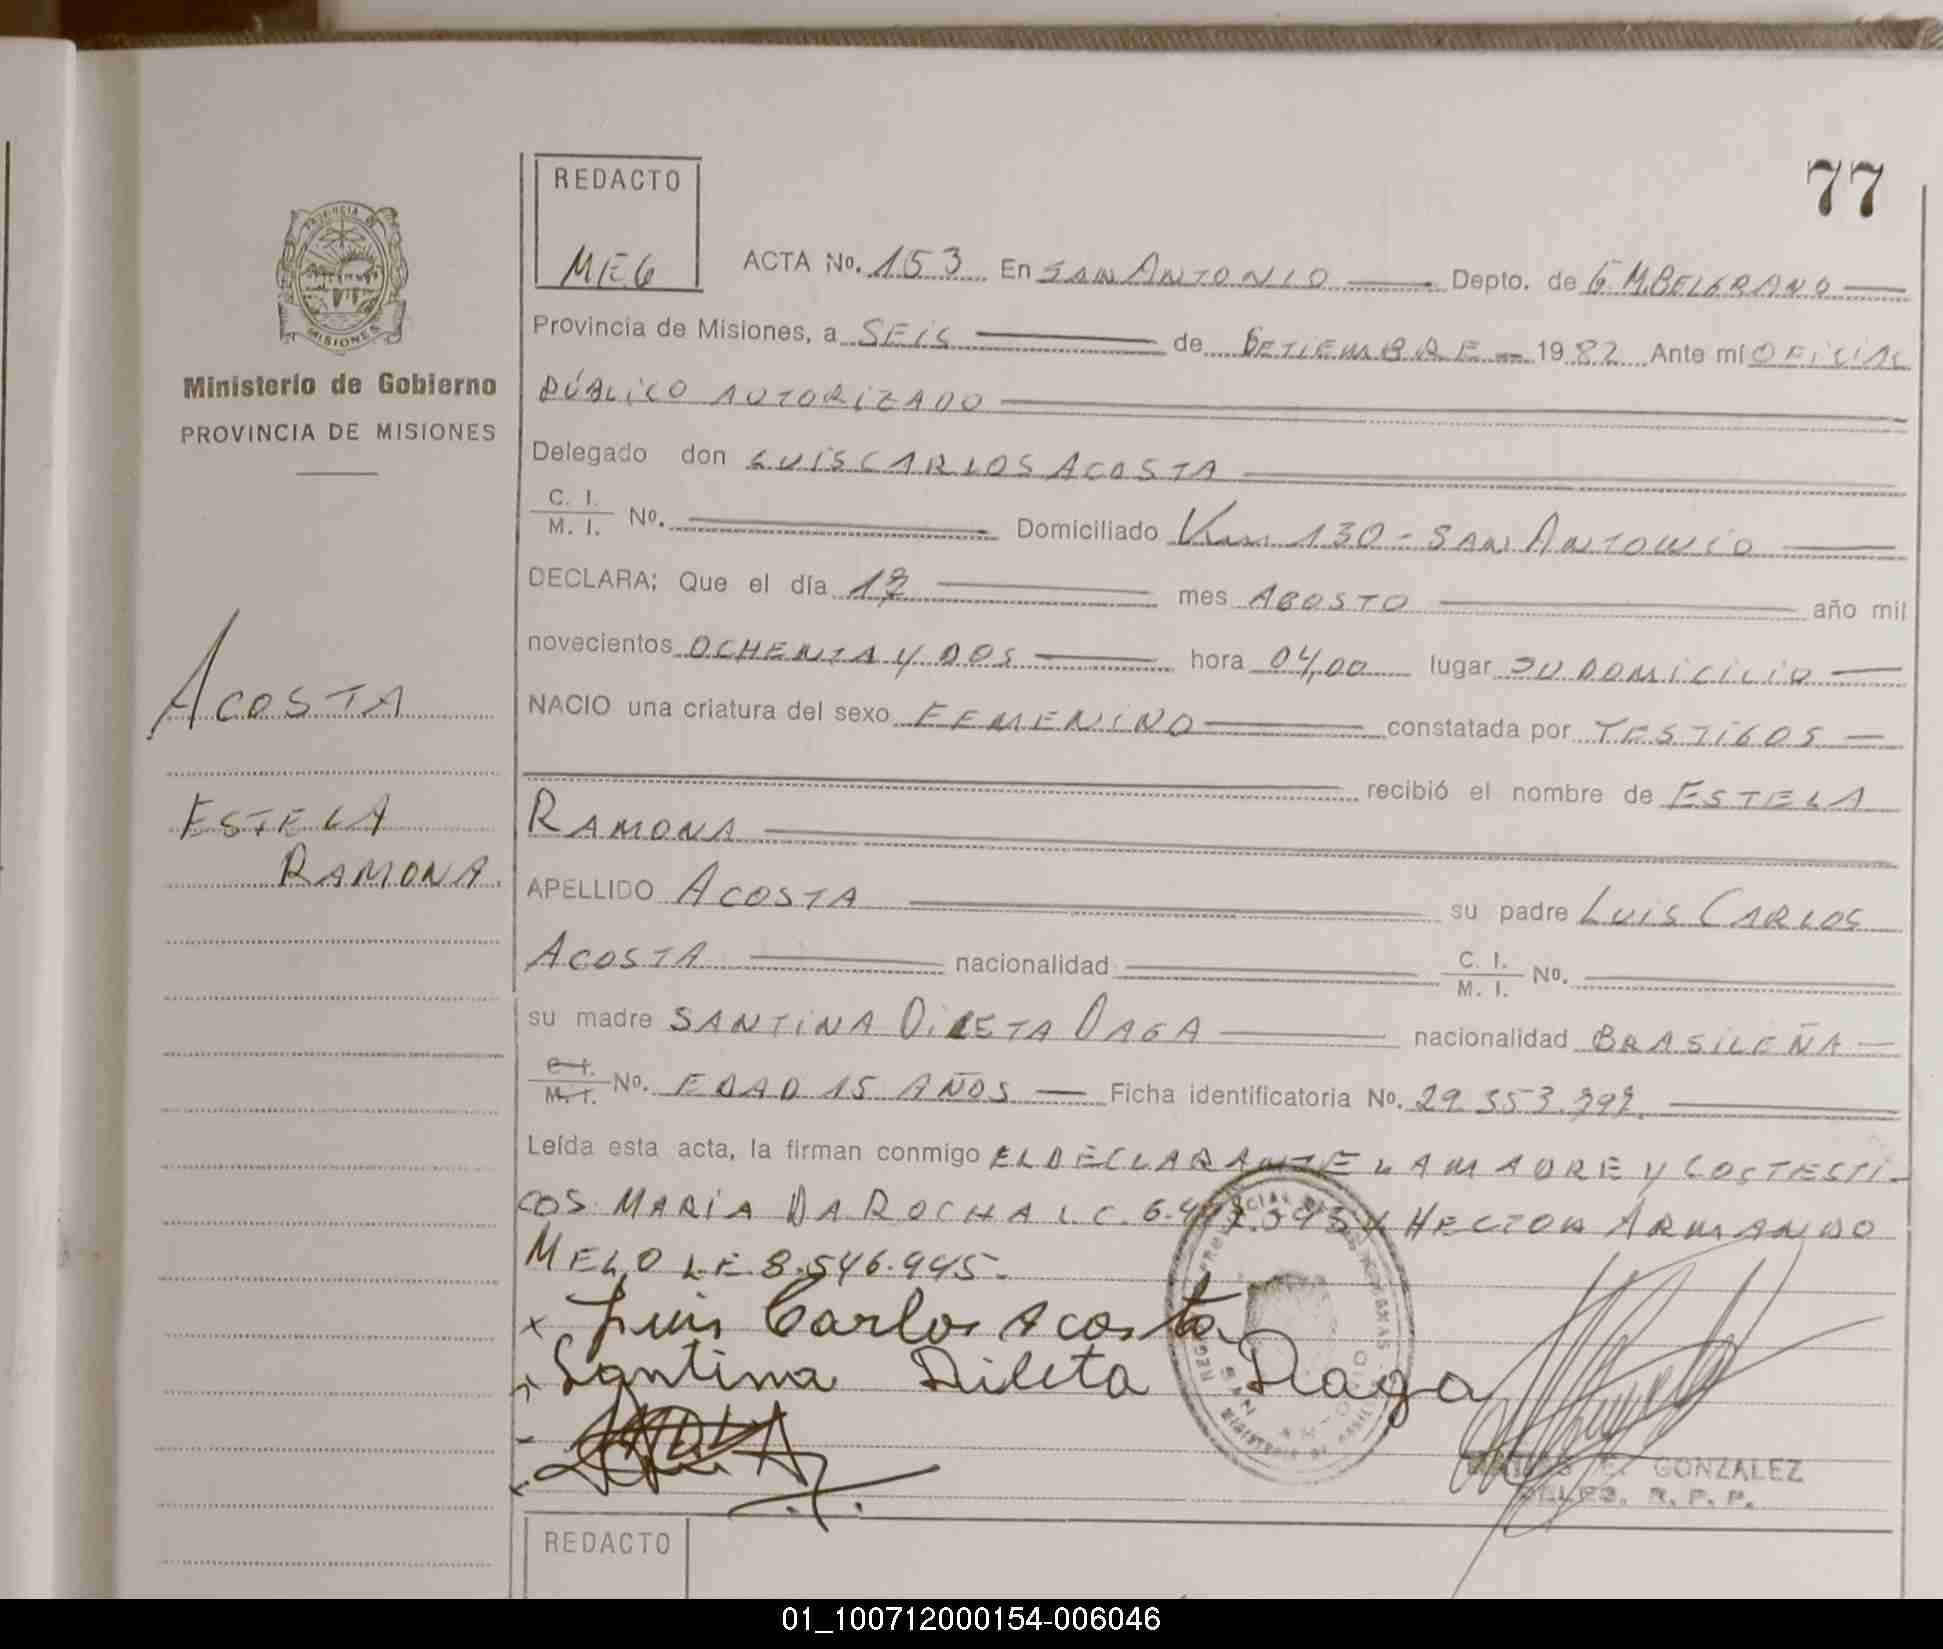 77
REDACTO
MEG
PROVINCIA DE
MISIONES
Ministerio de Gobierno
PROVINCIA DE MISIONES
ACOSTA
ESTELA
RAMONA
ACTA No. 153 En SAN ANTONIO Depto. de G. M. BELGRANO
Provincia de Misiones, a SEIS de SETIEMBRE 1982 Ante mí OFICIAL
PÚBLICO AUTORIZADO
Delegado don LUIS CARLOS ACOSTA
C. I.
M. I. No. Domiciliado Km 130 - SAN ANTONIO
DECLARA; Que el día mes AGOSTO año mil
novecientos OCHENTA Y DOS hora 04,00 lugar SU DOMICILIO
NACIO una criatura del sexo FEMENINO constatada por TESTIGOS
recibió el nombre de ESTELA
RAMONA
APELLIDO ACOSTA su padre LUIS CARLOS
ACOSTA nacionalidad C. I.
M. I. No.
su madre SANTINA DILETA DAGA nacionalidad BRASILEÑA
C. I.
M. I. No. EDAD 15 AÑOS Ficha identificatoria No.
Leída esta acta, la firman conmigo EL DECLARANTE LA MADRE Y LOS TESTI-
GOS MARIA DA ROCHA L.C. Y HECTOR ARMANDO
MELO L.E. 8.546.945.-
x Luis Carlos Acosta
Santina Dileta Daga
GONZALEZ
R. P. P.
REDACTO
01_100712000154-006046